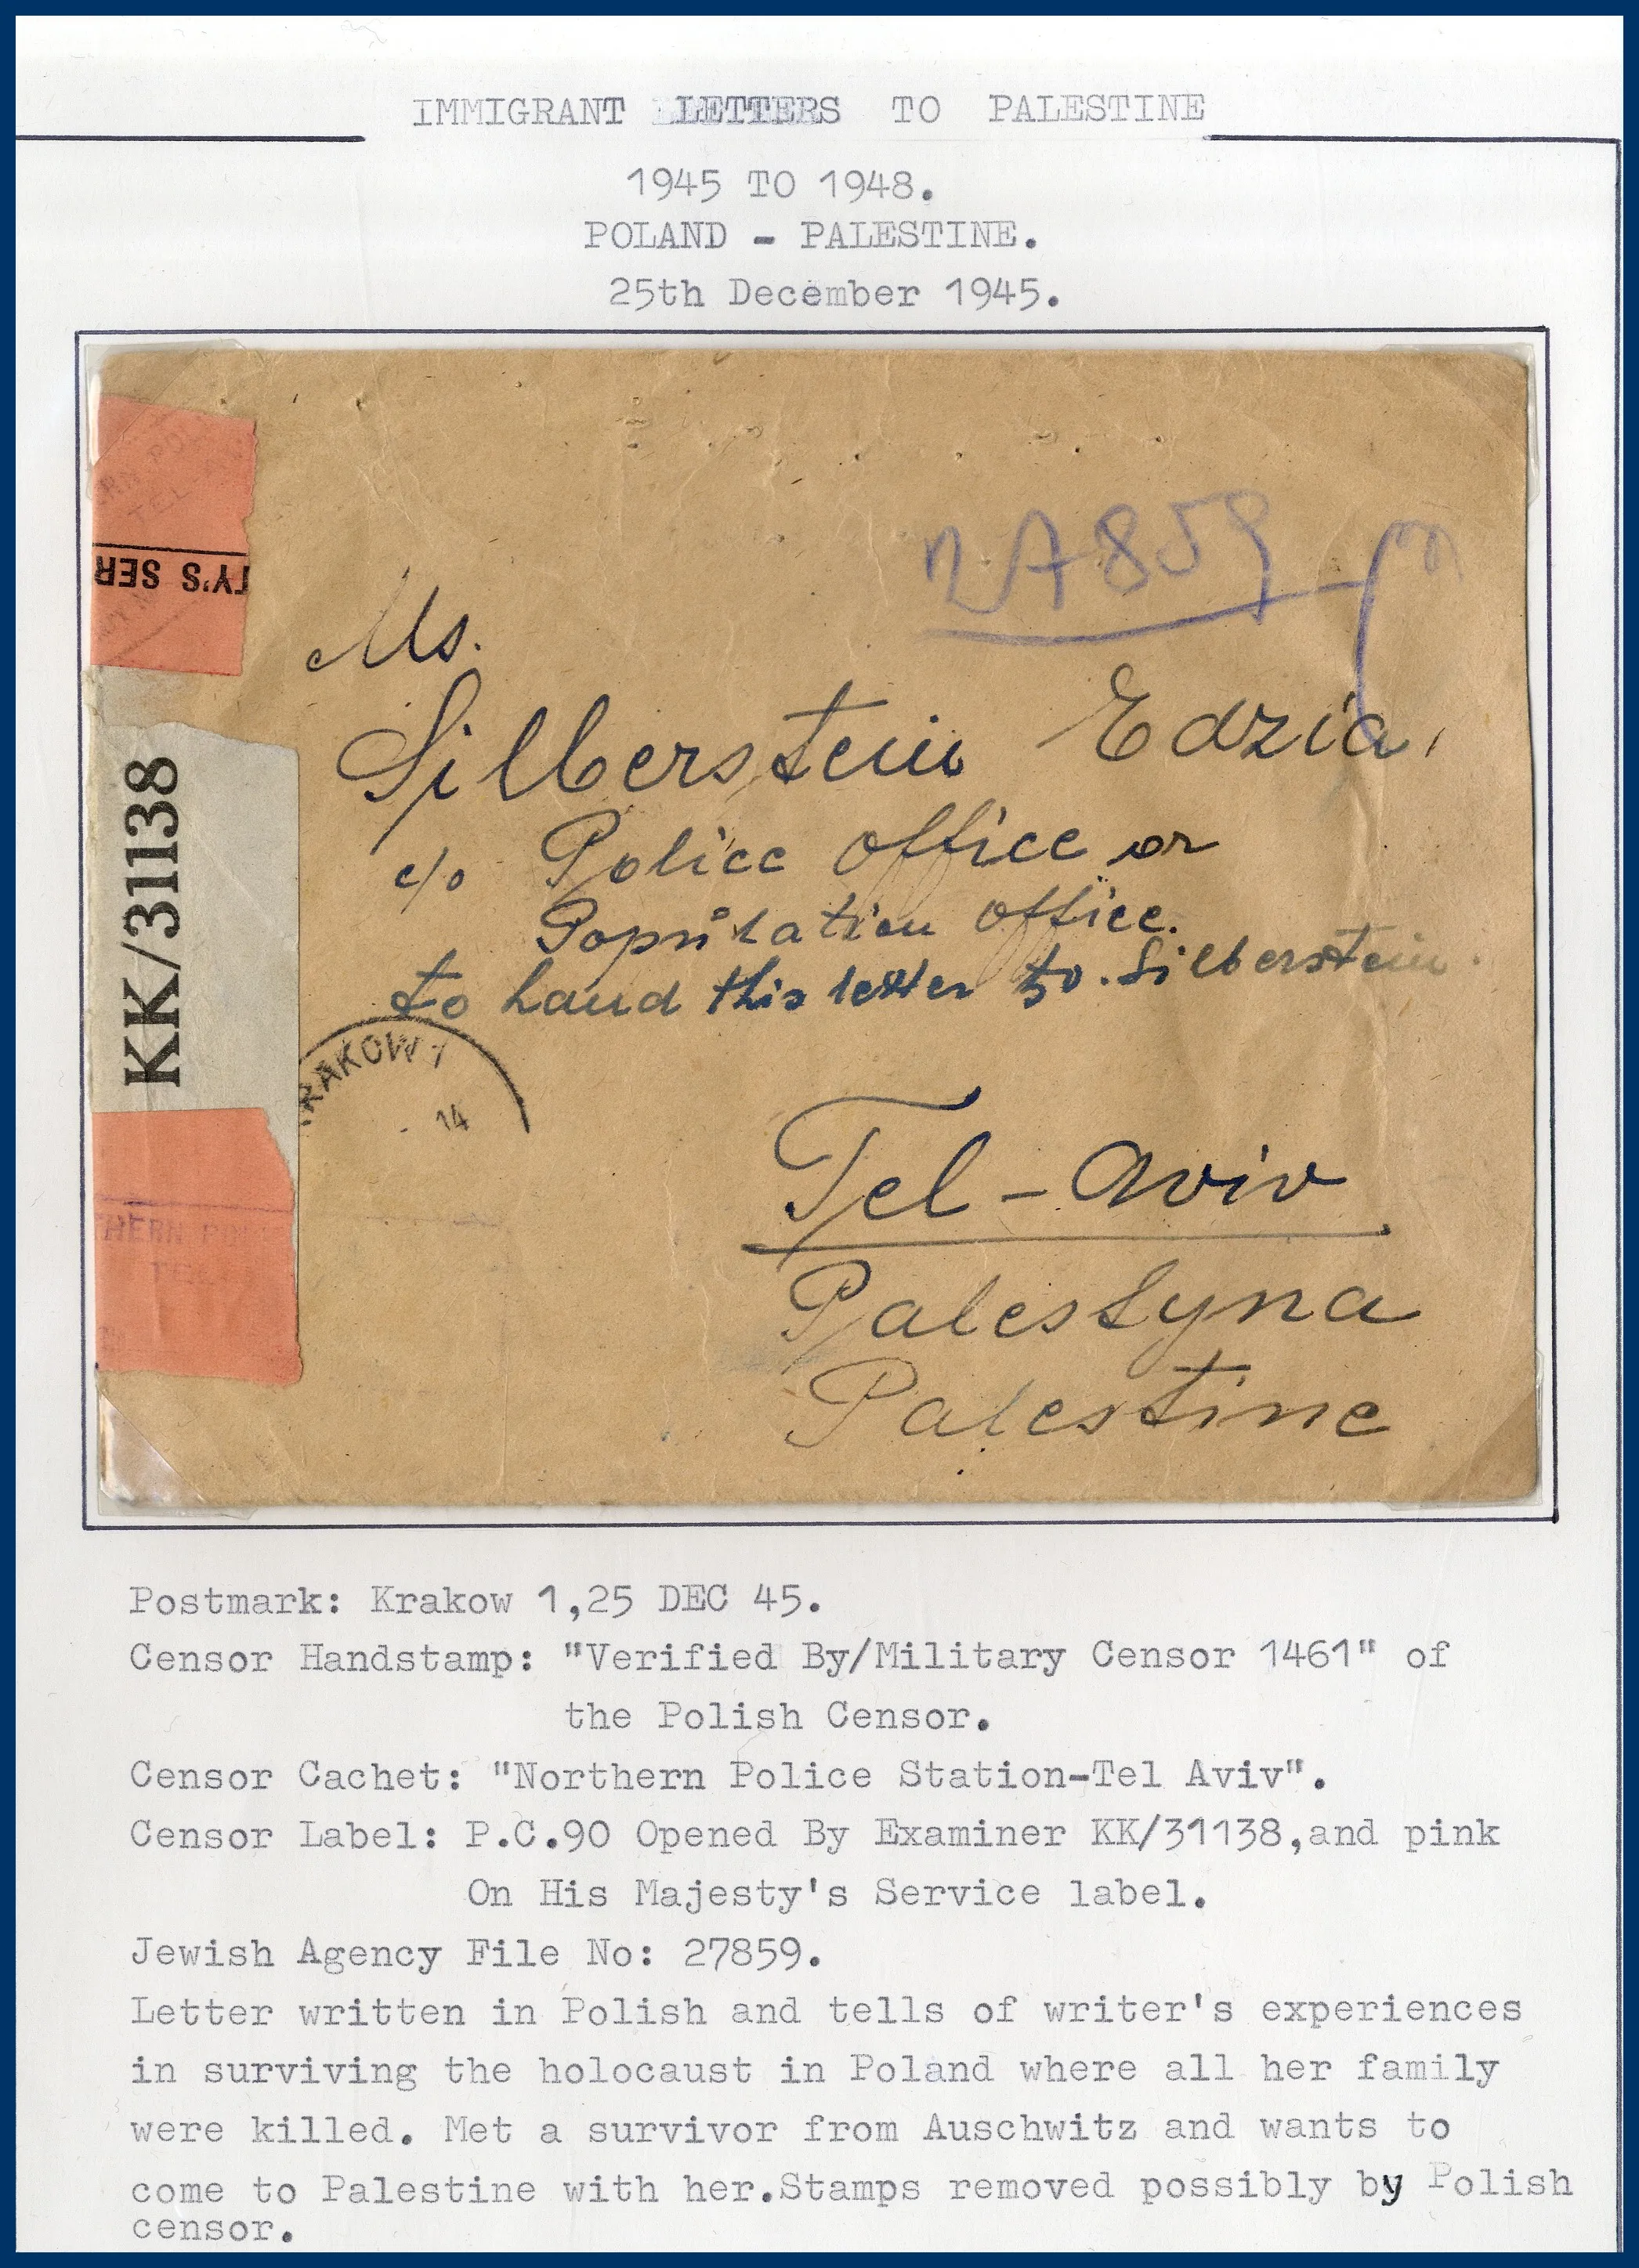 IMMIGRANT LETTERS TO PALESTINE
1945 TO 1948.
POLAND - PALESTINE.
25th December 1945.
TY'S SER
KK/31138
THERN PO
TEL
27859
Ms.
Silberstein Edzia,
c/o Police Office or
Population Office.
to hand this letter to. Silberstein.
RAKOW 1
14
Tel-Aviv
Palestyna
Palestine
Postmark: Krakow 1,25 DEC 45.
Censor Handstamp: "Verified By/Military Censor 1461" of
the Polish Censor.
Censor Cachet: "Northern Police Station-Tel Aviv".
Censor Label: P.C.90 Opened By Examiner KK/31138,and pink
On His Majesty's Service label.
Jewish Agency File No: 27859.
Letter written in Polish and tells of writer's experiences
in surviving the holocaust in Poland where all her family
were killed. Met a survivor from Auschwitz and wants to
come to Palestine with her.Stamps removed possibly by Polish
censor.